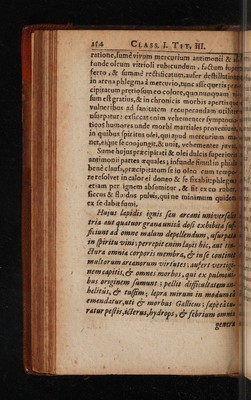 154 CLASS. I. TET. III.
ratione, sume vivum mercurium antimonii &
funde oleum vitrioli rubicundum, factum super
ferto, & summè rectificatum, aufer destillatione
in arena phlegma à mercurio, tunc assequeris præ-
cipitatum pretiosum eo colore, quo nunquam
sum est gratius, & in chronicis morbis apertisque
vulneribus ad sanitatem recuperandam utiliter
usurpatur: exsiccat enim vehementer symptoma-
ticos humores unde morbi martiales proveniunt,
in quibus spiritus olei, qui apud mercurium ma-
net, eique se conjungit, & unit, vehementer juvat.
Sume hujus præcipitati & olei dulcis superioris
antimonii partes æquales, infunde simul in phiala
benè clausa, præcipitatum se in oleo cum tempo-
re resolvet in calore donec & se fixabit: phlegma
etiam per ignem absumitur, & fit ex eo rubeus,
siccus & fluidus pulvis, qui ne minimum quidem
ex se dabit fumi.
Hujus lapidis ignis seu arcani universalis
tria aut quatuor grana unica dosi exhibita suf-
ficiunt ad omne malum depellendum, usurpata
in spiritu vini: percepit enim lapis hic, aut tin-
ctura omnia corporis membra, & in se continet
multorum arcanorum virtutes: aufert vertigi-
nem capitis, & omnes morbos, qui ex pulmoni-
bus originem sumunt: pellit difficultatem an-
helitus, & tussim; lepra mirum in modum
emendatur, uti & morbus Gallicus: sæpè
ratur pestis, icterus, hydrops, & febrium omnia
genera